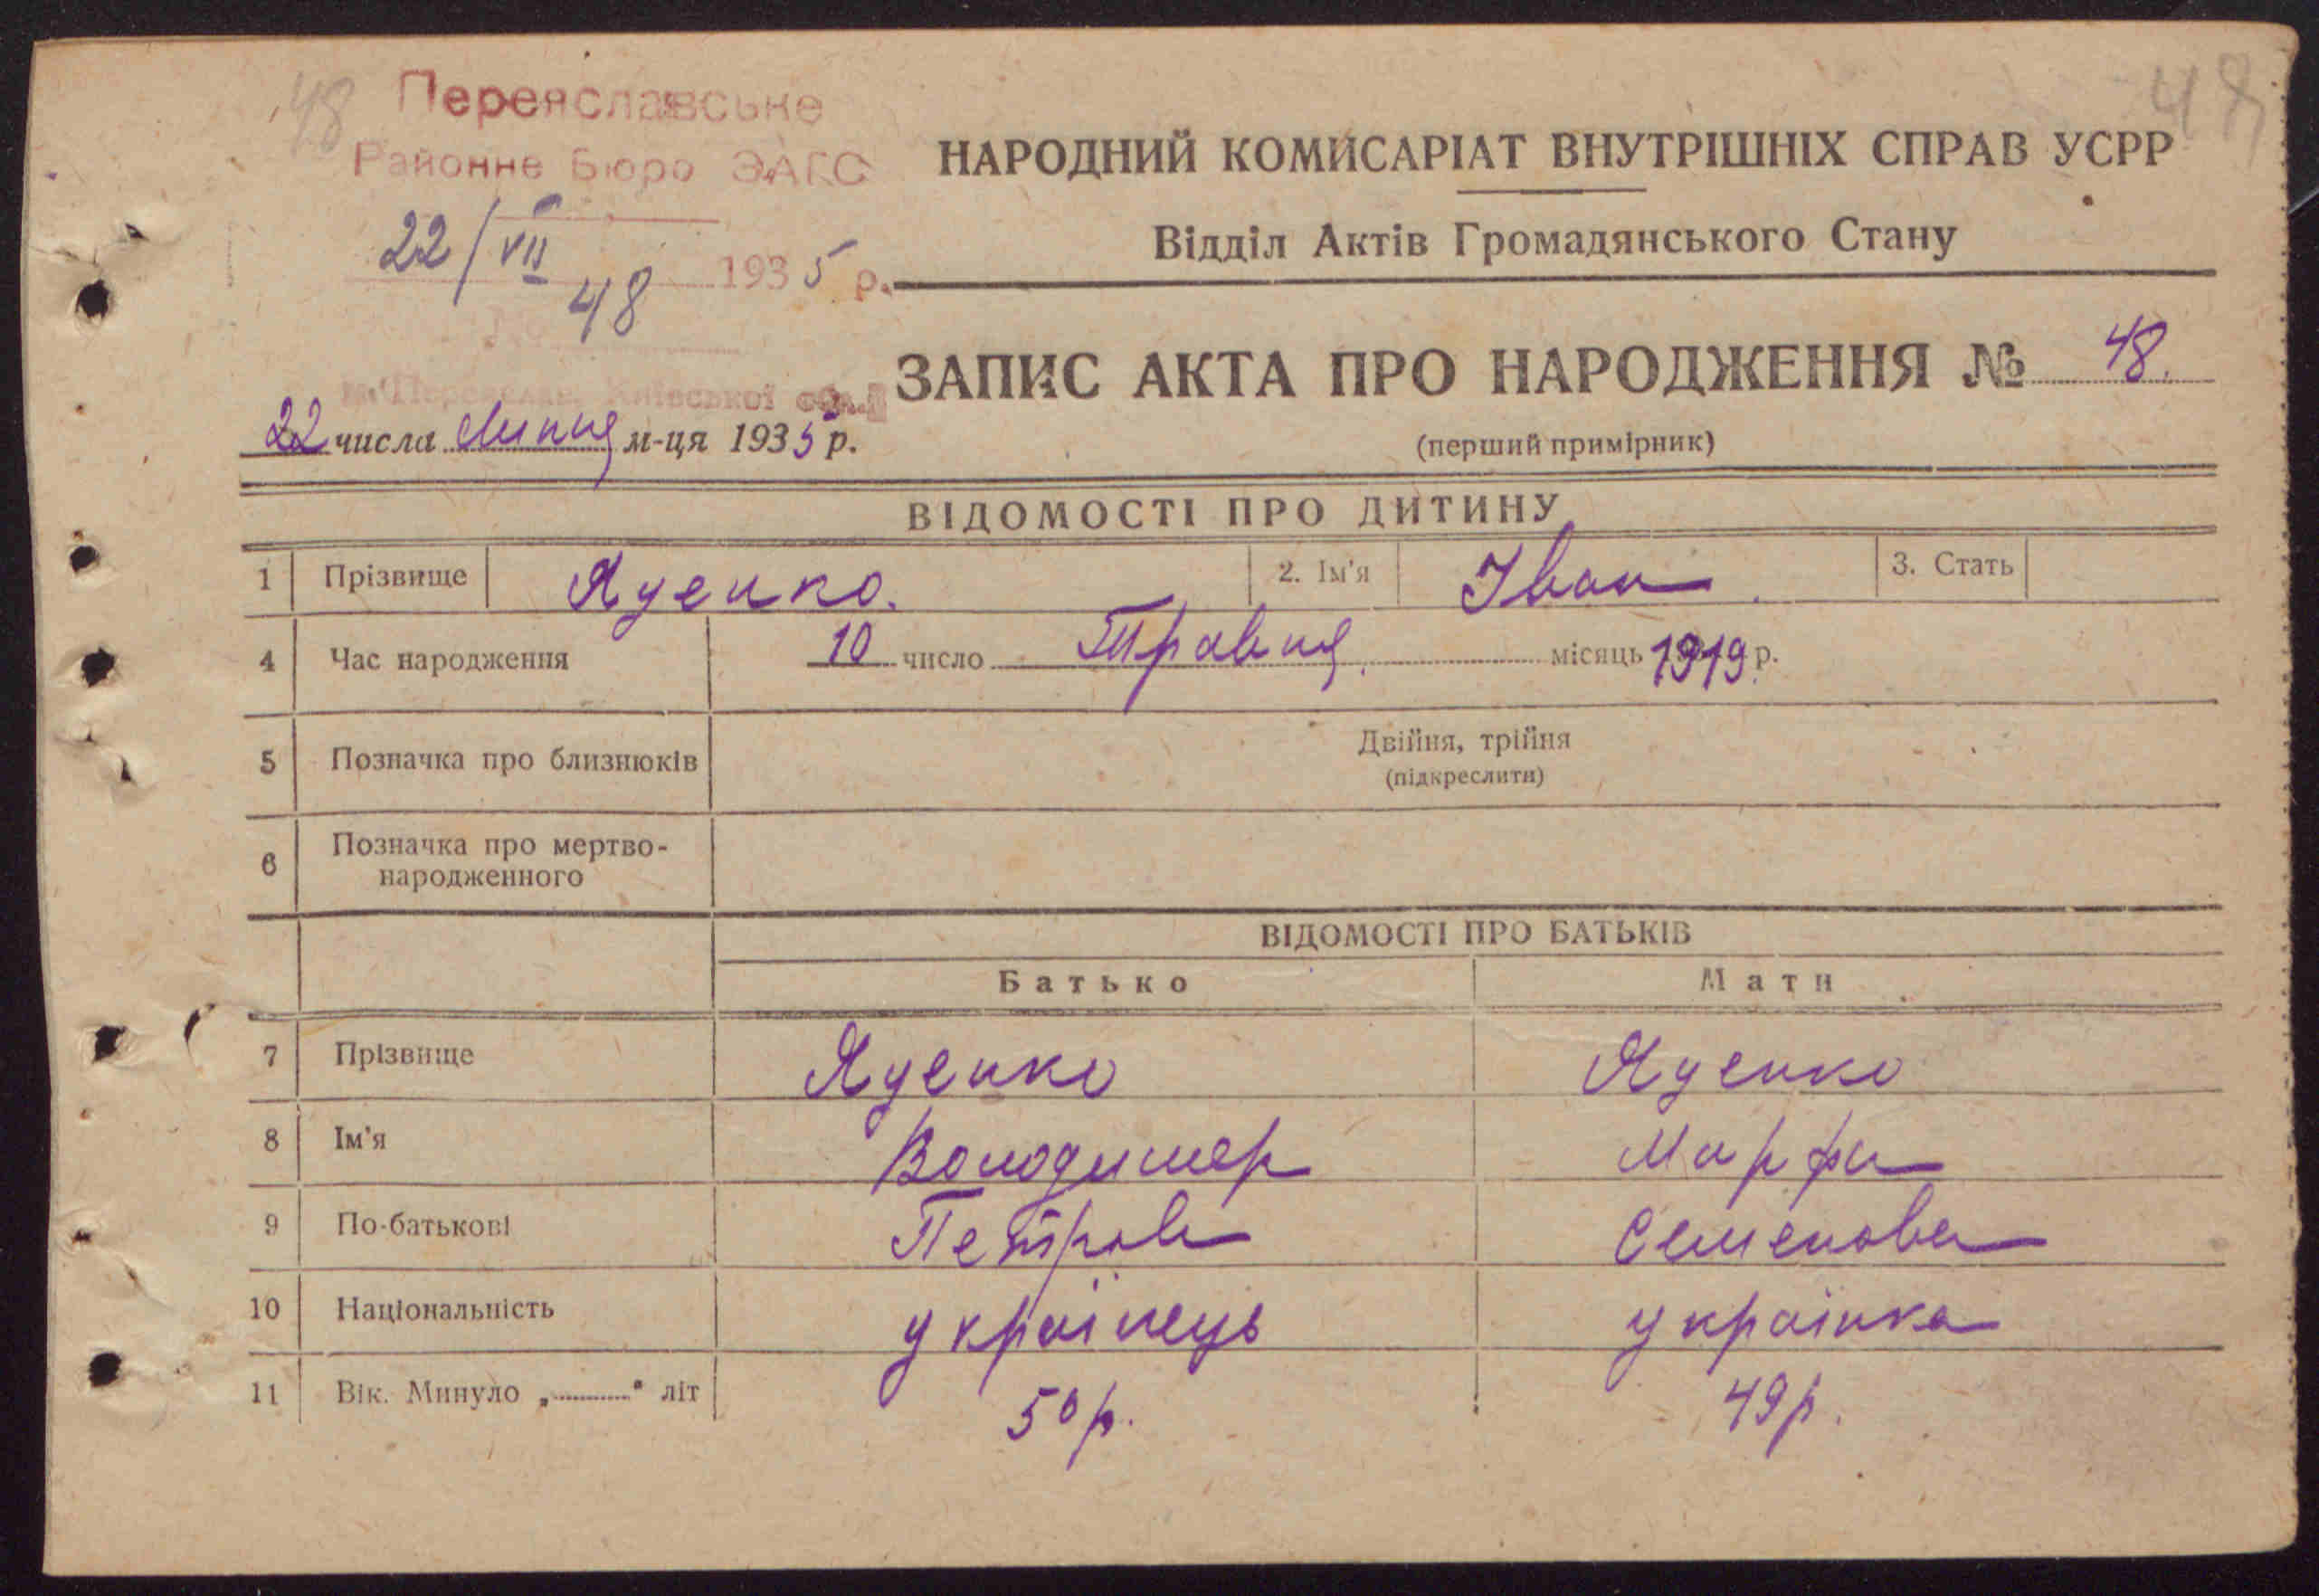 48
48
Переяславське
Районне Бюро ЗАГС
22/VII 1935 р.
48
м. Переяслав, Київської обл.
НАРОДНИЙ КОМИСАРІАТ ВНУТРІШНІХ СПРАВ УСРР
Відділ Актів Громадянського Стану
ЗАПИС АКТА ПРО НАРОДЖЕННЯ № 48.
22 числа Липня м-ця 1935 р.
(перший примірник)
ВІДОМОСТІ ПРО ДИТИНУ
1 Прізвище Яценко. 2. Ім'я Іван. 3. Стать
4 Час народження 10 число Травня. місяць 1919 р.
5 Позначка про близнюків Двійня, трійня
(підкреслити)
6 Позначка про мертво-
народженного
ВІДОМОСТІ ПРО БАТЬКІВ
Батько Мати
7 Прізвище Яценко Яценко
8 Ім'я Володимер Марфа
9 По-батькові Петров Семенова
10 Національність українець українка
11 Вік. Минуло „ " літ 50 р. 49 р.